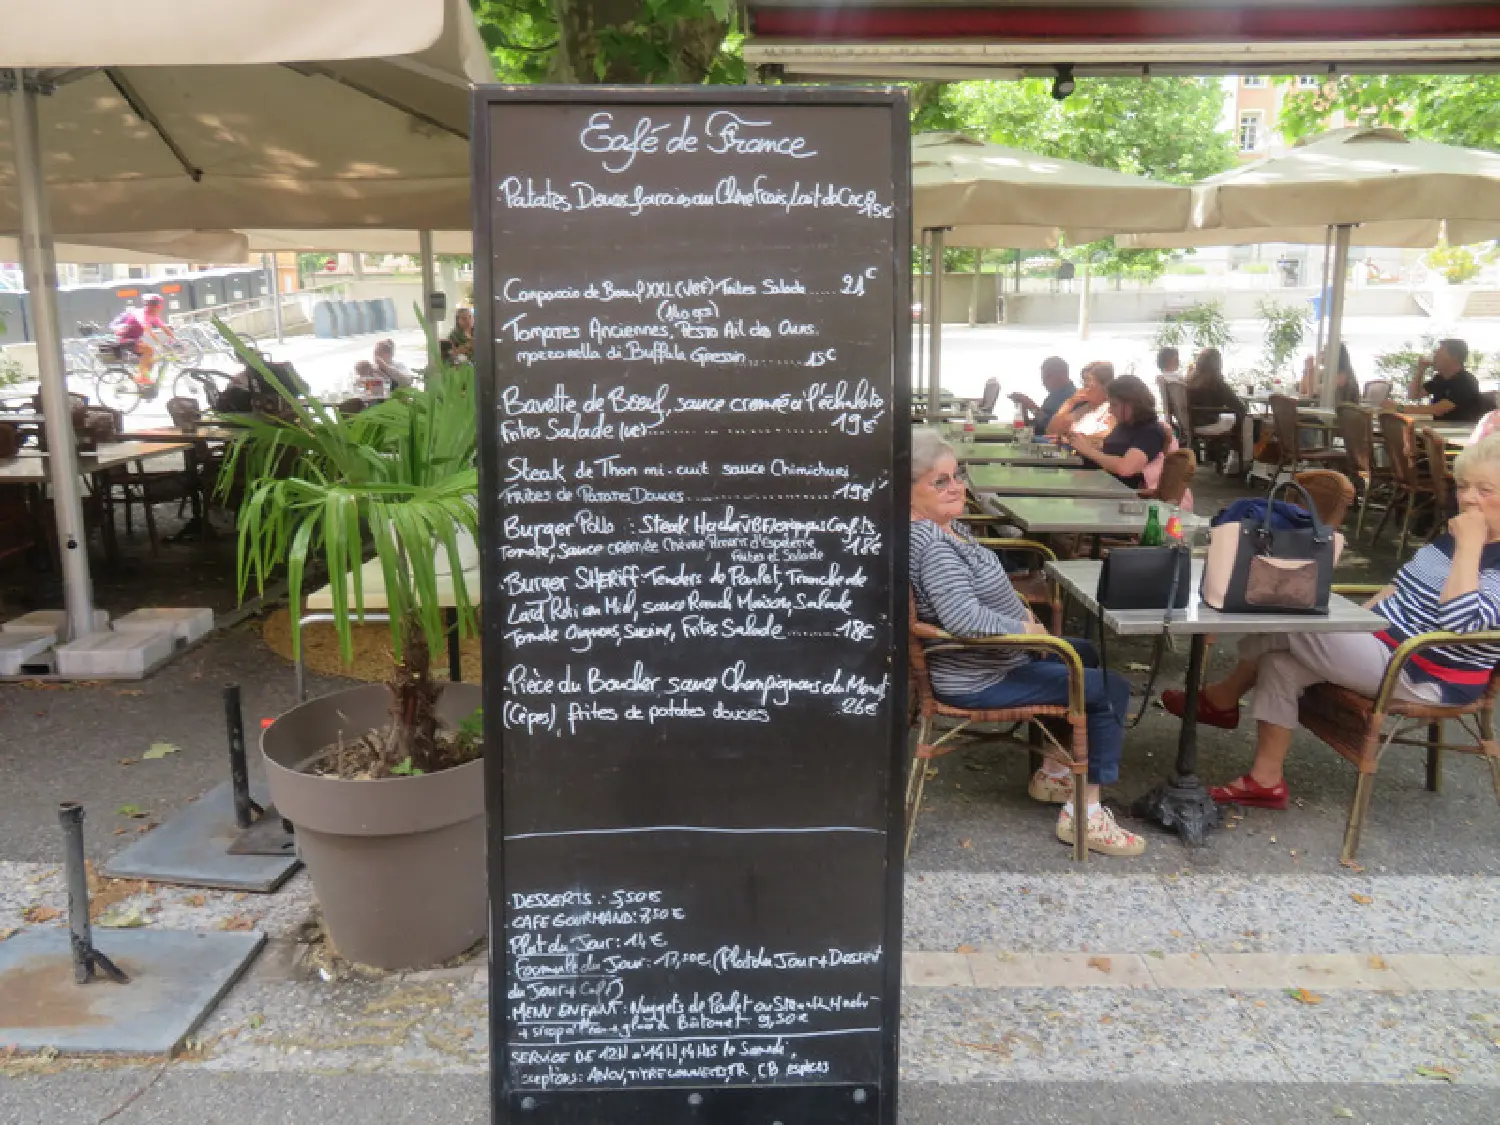 Café de France
Patates Douces farcies au Chèvre Frais, Lait de Coco 15€
Carpaccio de Boeuf XXL (VBF) Frites Salade ..... 21€
(140 grs)
Tomates Anciennes, Pesto Ail des Ours.
mozzarella di Buffala Gressin ......... 15€
Bavette de Boeuf, sauce crémée à l'échalote
Frites Salade (UE) ............ 19€
Steak de Thon mi-cuit sauce Chimichuri
Frites de Patates Douces .............. 19€
Burger : Steak Haché VBF, oignons Confits
Tomate, Sauce crémée Chèvre Piment d'Espelette 18€
Frites et Salade
Burger SHERIFF: Tenders de Poulet, Tranche de
Lard Rôti au Miel, sauce Ranch Maison, Salade
Tomate Oignons, Frites Salade ........ 18€
Pièce du Boucher sauce Champignons du Moment
(Cèpes), frites de patates douces 26€
DESSERTS : 5,50€
CAFE GOURMAND: 7,50€
Plat du Jour : 14€
Formule du Jour : 17,50€ (Plat du Jour + Dessert
du Jour + Café)
MENU ENFANT : Nuggets de Poulet ou Steak Haché
+ sirop + glace Bâtonnet 9,50€
SERVICE DE 12H à 14H, 14H15 le Samedi.
: ANCV, TITRE, TR, CB espèces